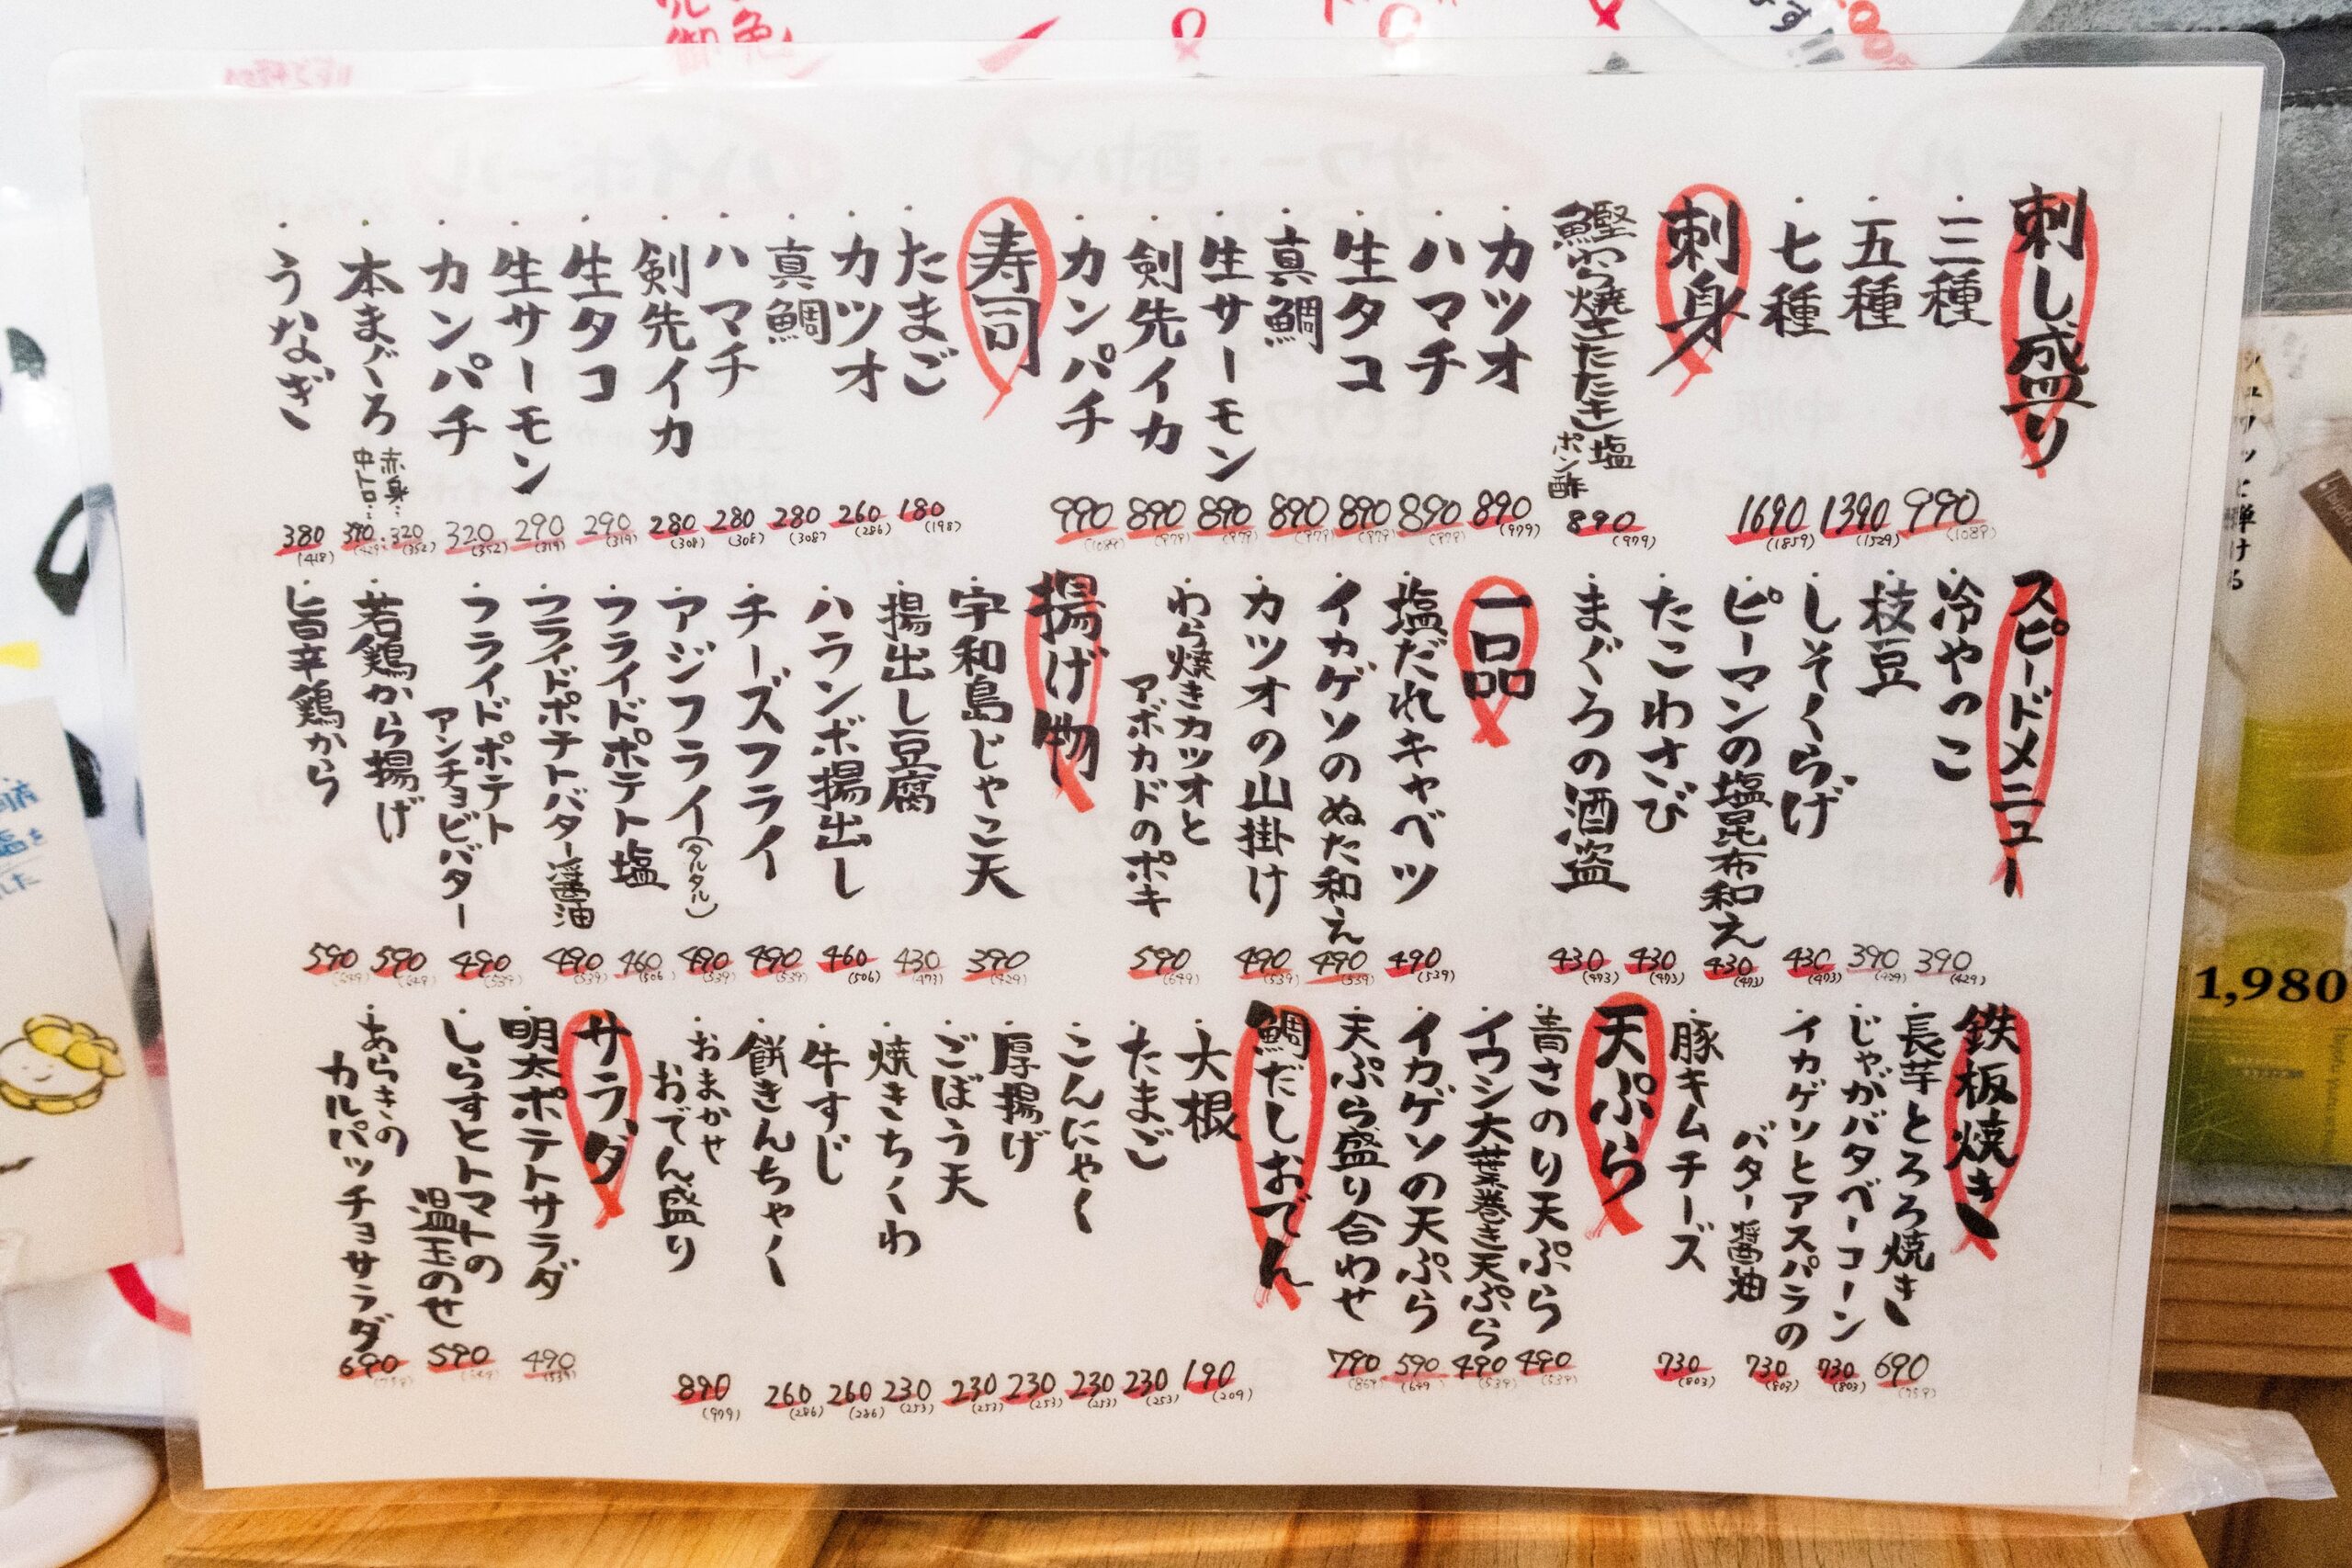 刺し盛り
・三種 990 (1089)
・五種 1390 (1529)
・七種 1690 (1859)
刺身
鰹わら焼きたたき 塩 ポン酢 890 (979)
・カツオ 890 (979)
・ハマチ 890 (979)
・生タコ 890 (979)
・真鯛 890 (979)
・生サーモン 890 (979)
・剣先イカ 890 (979)
・カンパチ 990 (1089)
寿司
・たまご 180 (198)
・カツオ 260 (286)
・真鯛 280 (308)
・ハマチ 280 (308)
・剣先イカ 280 (308)
・生タコ 290 (319)
・生サーモン 290 (319)
・カンパチ 320 (352)
・本まぐろ 赤身… 320 (352)
中トロ… 390 (429)
・うなぎ 380 (418)
スピードメニュー
・冷やっこ 390 (429)
・枝豆 390 (429)
・しそくらげ 430 (473)
・ピーマンの塩昆布和え 430 (473)
・たこわさび 430 (473)
・まぐろの酒盗 430 (473)
一品
・塩だれキャベツ 490 (539)
・イカゲソのぬた和え 490 (539)
・カツオの山掛け 490 (539)
・わら焼きカツオと
アボカドのポキ 590 (649)
揚げ物
・宇和島じゃこ天 390 (429)
・揚出し豆腐 430 (473)
・ハランボ揚出し 460 (506)
・チーズフライ 490 (539)
・アジフライ(タルタル) 490 (539)
・フライドポテト塩 460 (506)
・フライドポテトバター醤油 490 (539)
・フライドポテト
アンチョビバター 490 (539)
・若鶏から揚げ 590 (649)
・旨辛鶏から 590 (649)
鉄板焼き
・長芋とろろ焼き 690 (759)
・じゃがバタベーコーン 730 (803)
・イカゲソとアスパラの
バター醤油 730 (803)
・豚キムチーズ 730 (803)
天ぷら
・青さのり天ぷら 490 (539)
・イワシ大葉巻き天ぷら 490 (539)
・イカゲソの天ぷら 590 (649)
・天ぷら盛り合わせ 790 (869)
鯛だしおでん
・大根 190 (209)
・たまご 230 (253)
・こんにゃく 230 (253)
・厚揚げ 230 (253)
・ごぼう天 230 (253)
・焼きちくわ 230 (253)
・牛すじ 260 (286)
・餅きんちゃく 260 (286)
・おまかせ
おでん盛り 890 (979)
サラダ
・明太ポテトサラダ 490 (539)
・しらすとトマトの
温玉のせ 590 (649)
・あらきの
カルパッチョサラダ 690 (759)
1,980